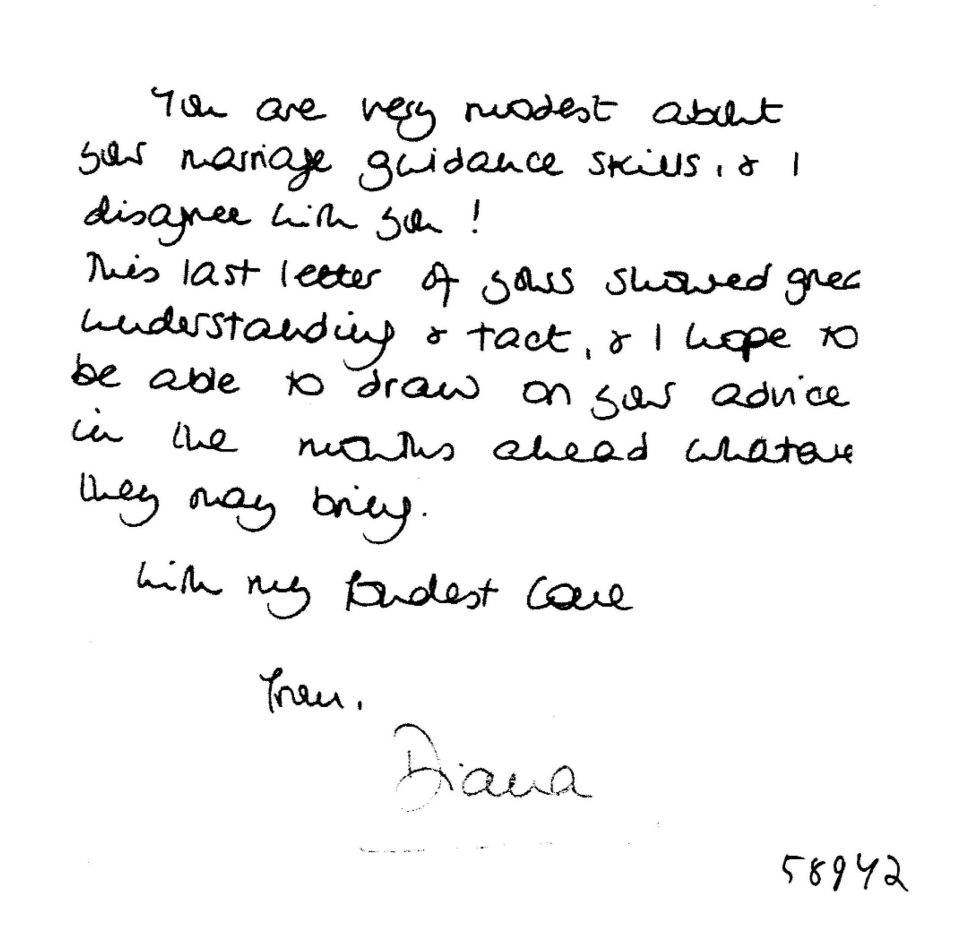 You are very modest about
your marriage guidance skills, & I
disagree with you!
This last letter of yours showed grea
understanding & tact, & I hope to
be able to draw on your advice
in the months ahead whateve
they may bring.
With my fondest love
from,
Diana
58942